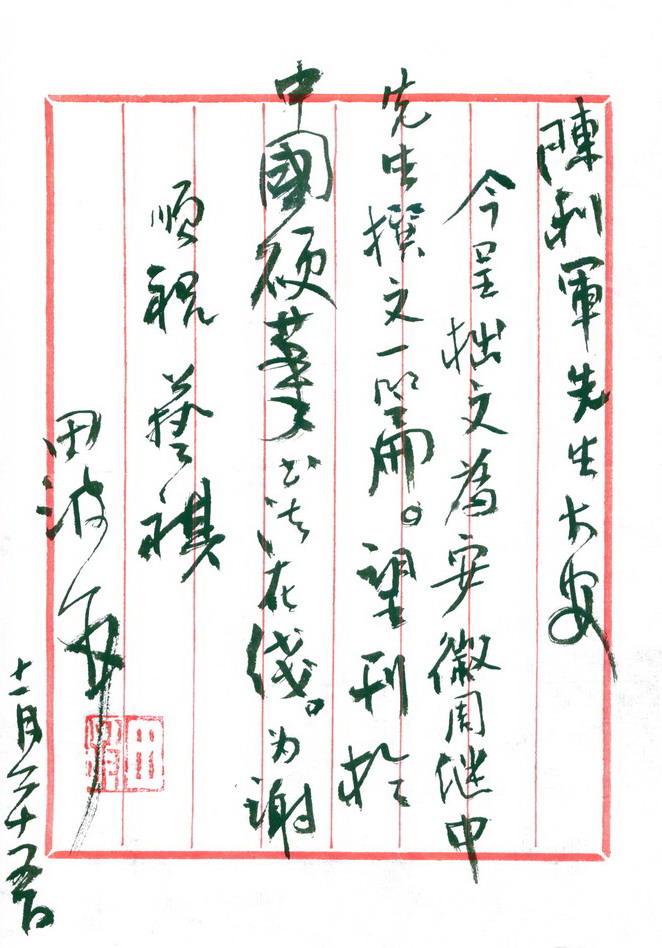 陳利軍先生大安
今呈拙文為安徽周继中
先生撰文一篇。望刊於
中國硬筆书法在线。为謝
順祝藝祺
田波
十一月二十五日